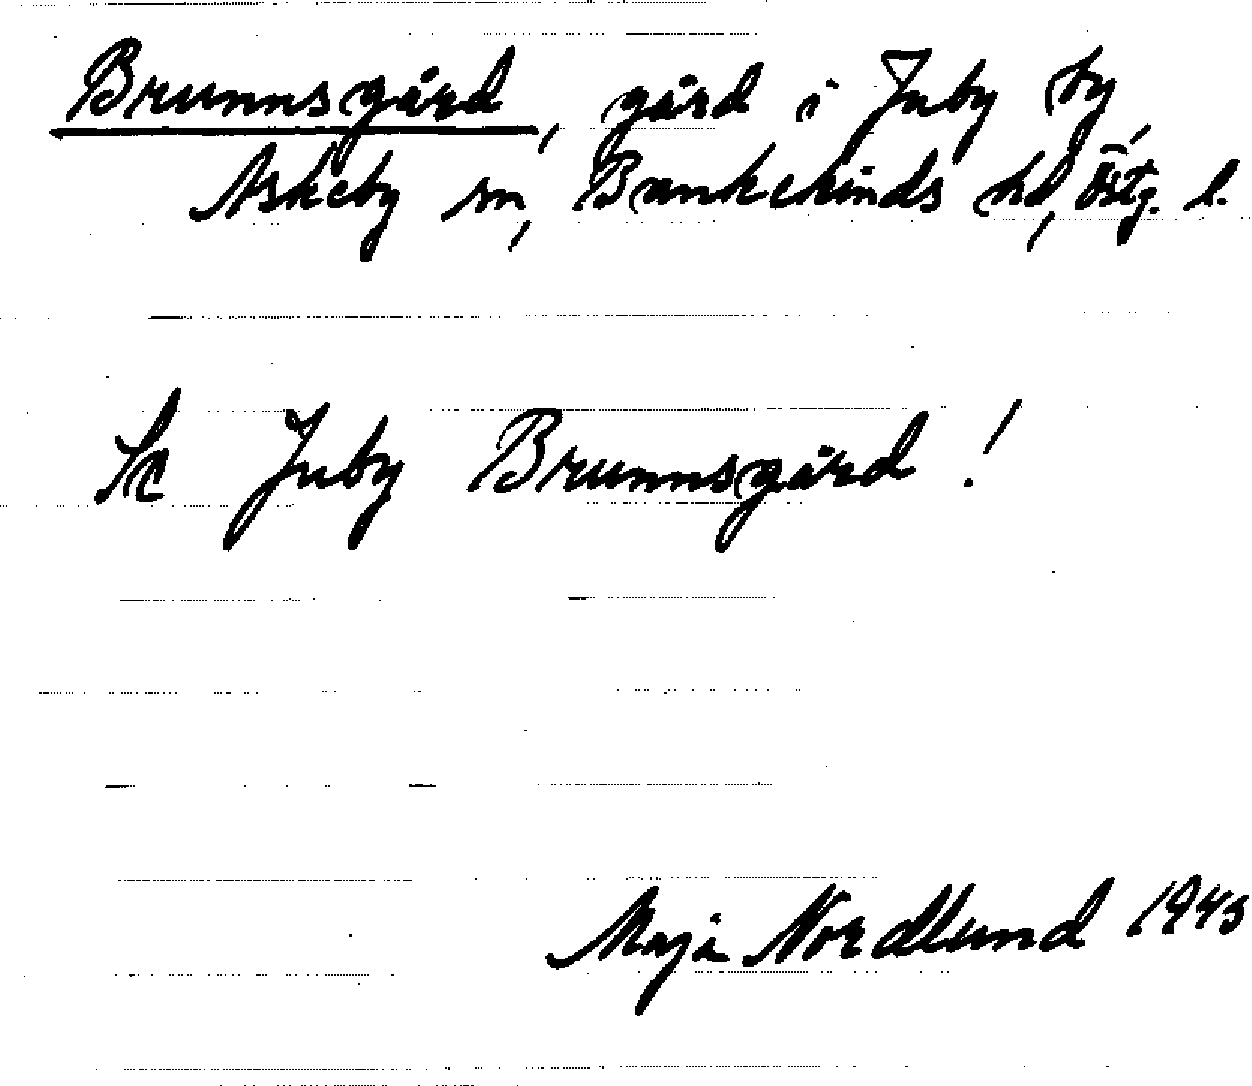 Brunnsgård, gård i Juby by,
Askeby sn, Bankekinds hd, Östg. l.
Se Juby Brunnsgård!
Maja Nordlund 1943